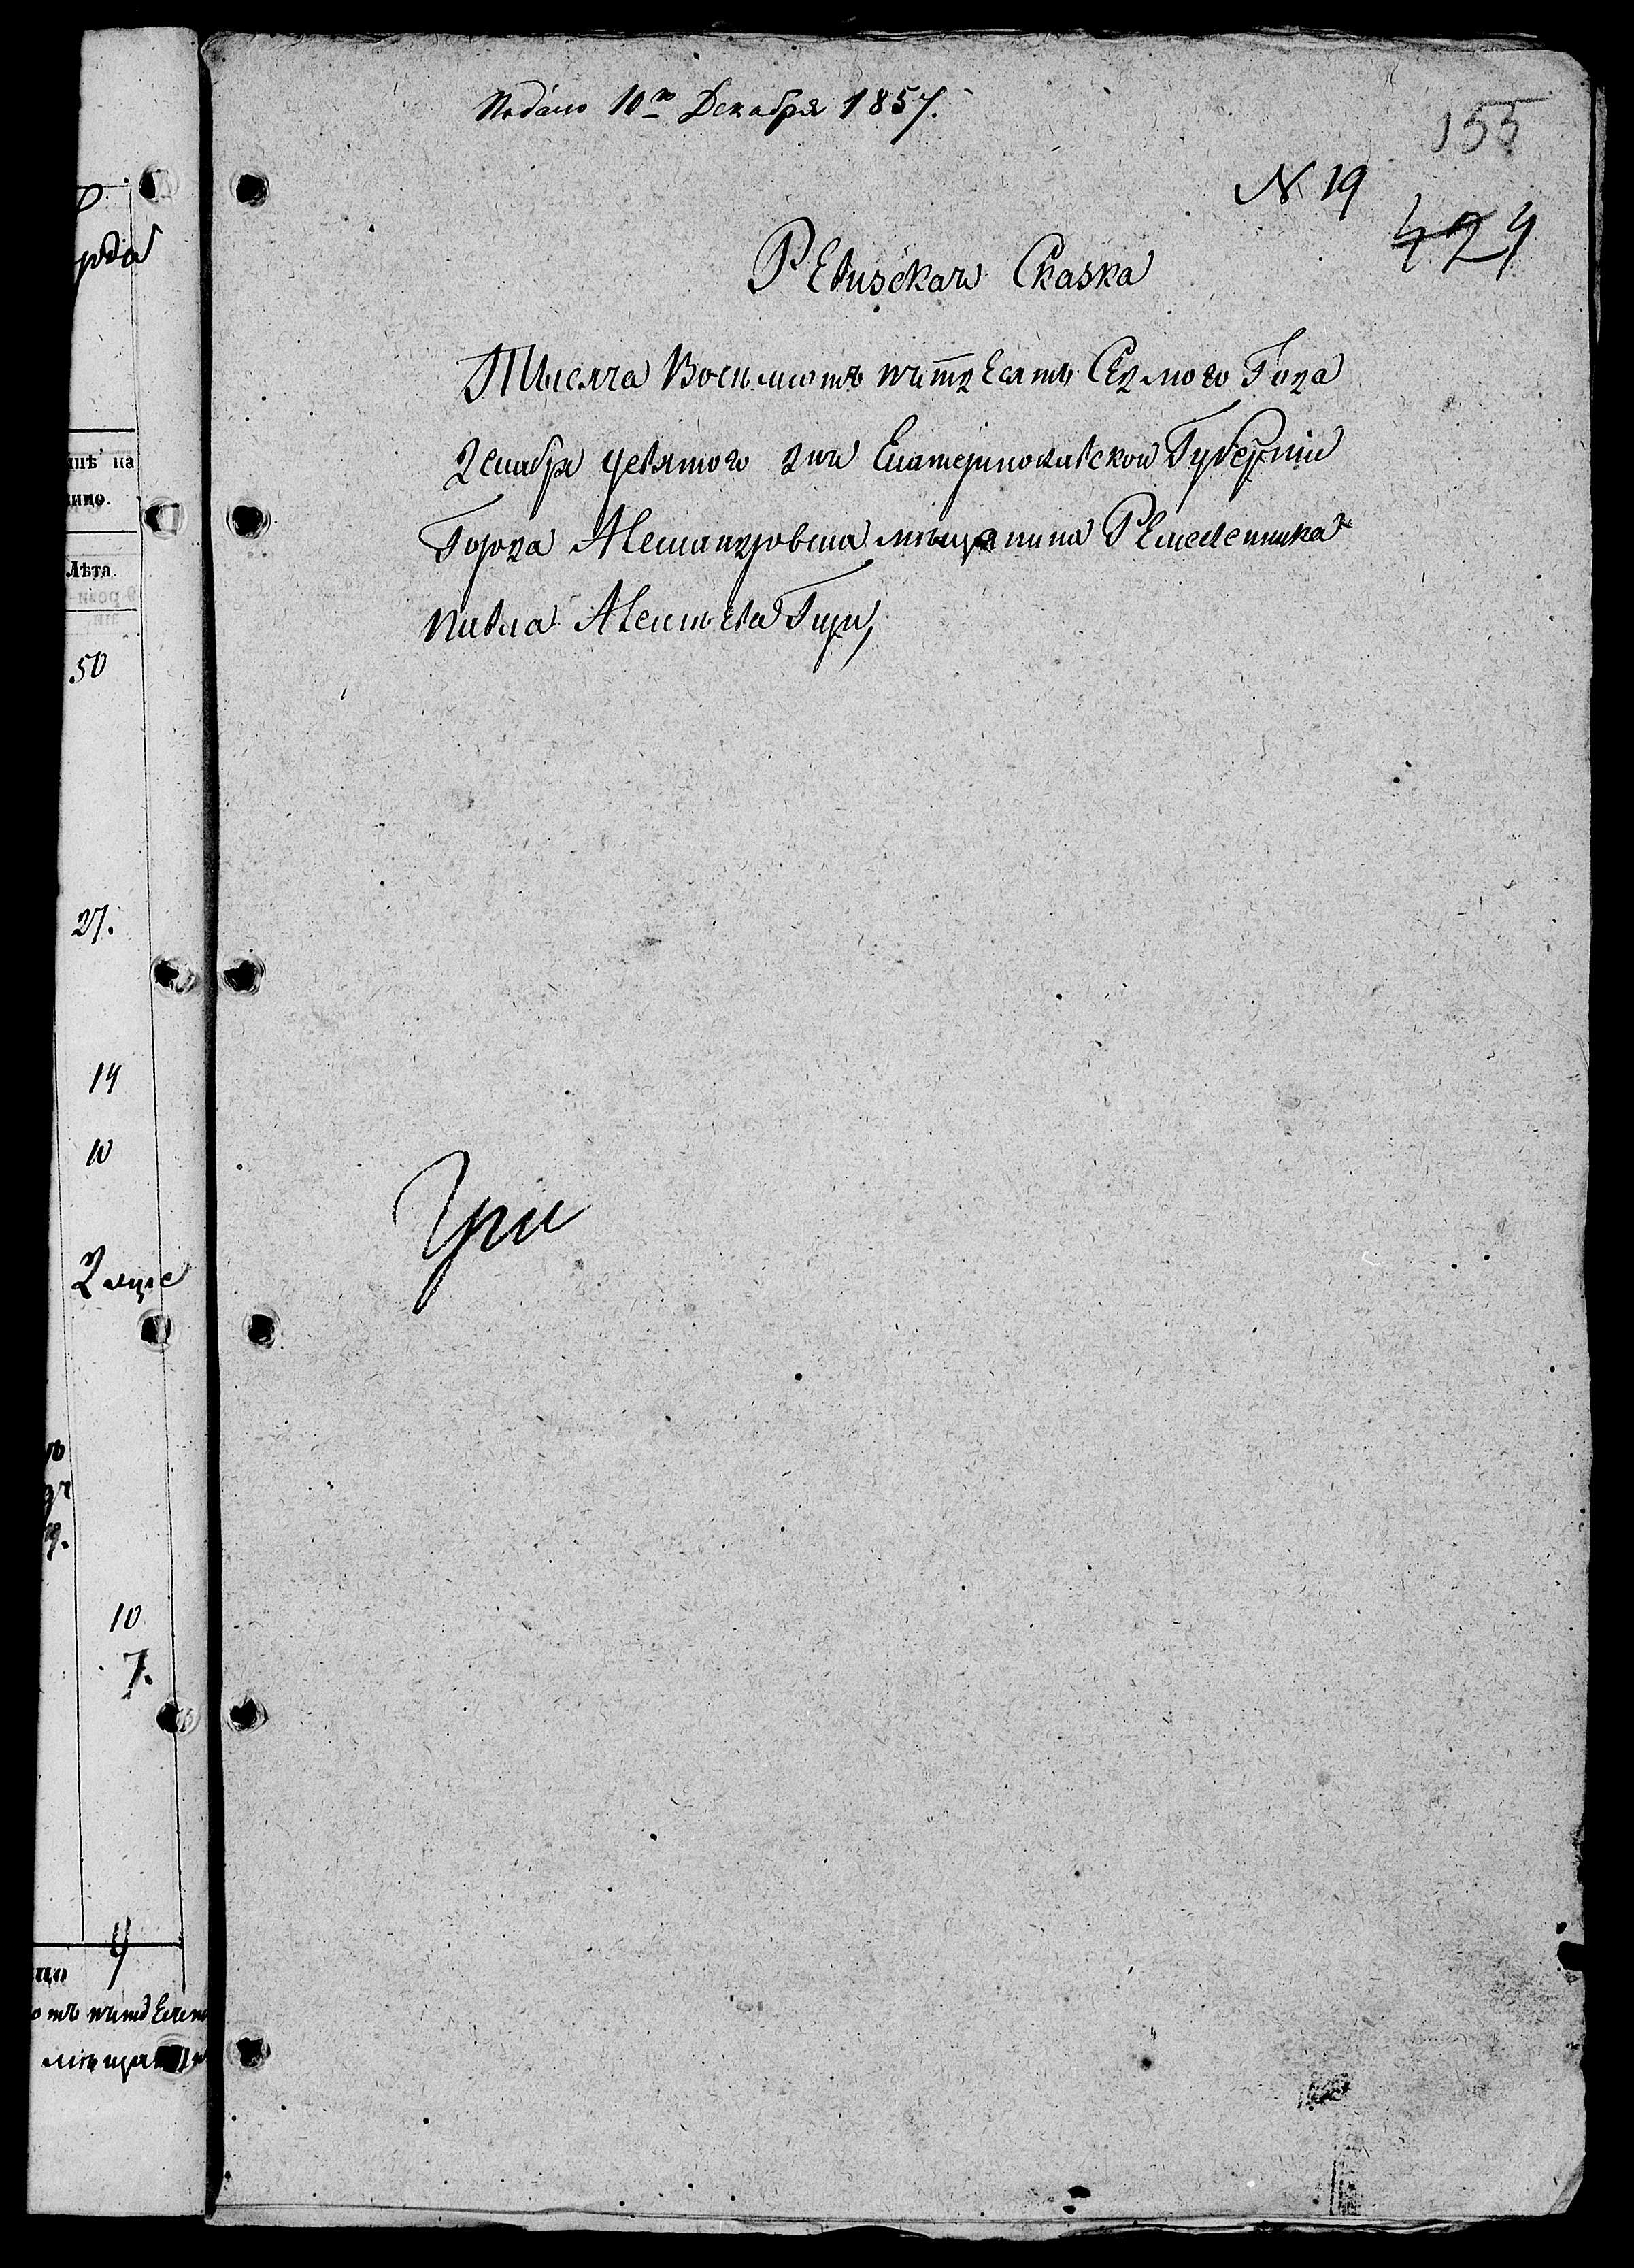 Подано 10го Декабря 1857.
155
N. 19
424
Ревизская Сказка
Тысяча Восемьсотъ пятдесятъ Седмого Года
декабря девятого дня Екатеринославской Губерніи
Города Александровска мещанина Ремесленника
павла Алексѣева Гири,
Гири
инѣ на
Лѣта.
50
27.
14
10
10
7.
4